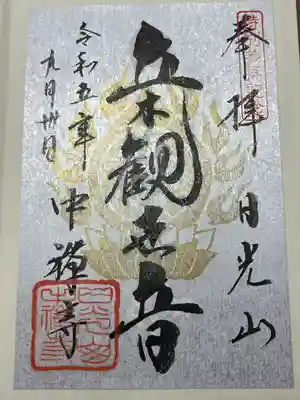 奉拝 日光山
立木観世音
中禅寺
令和五年
九月卅日